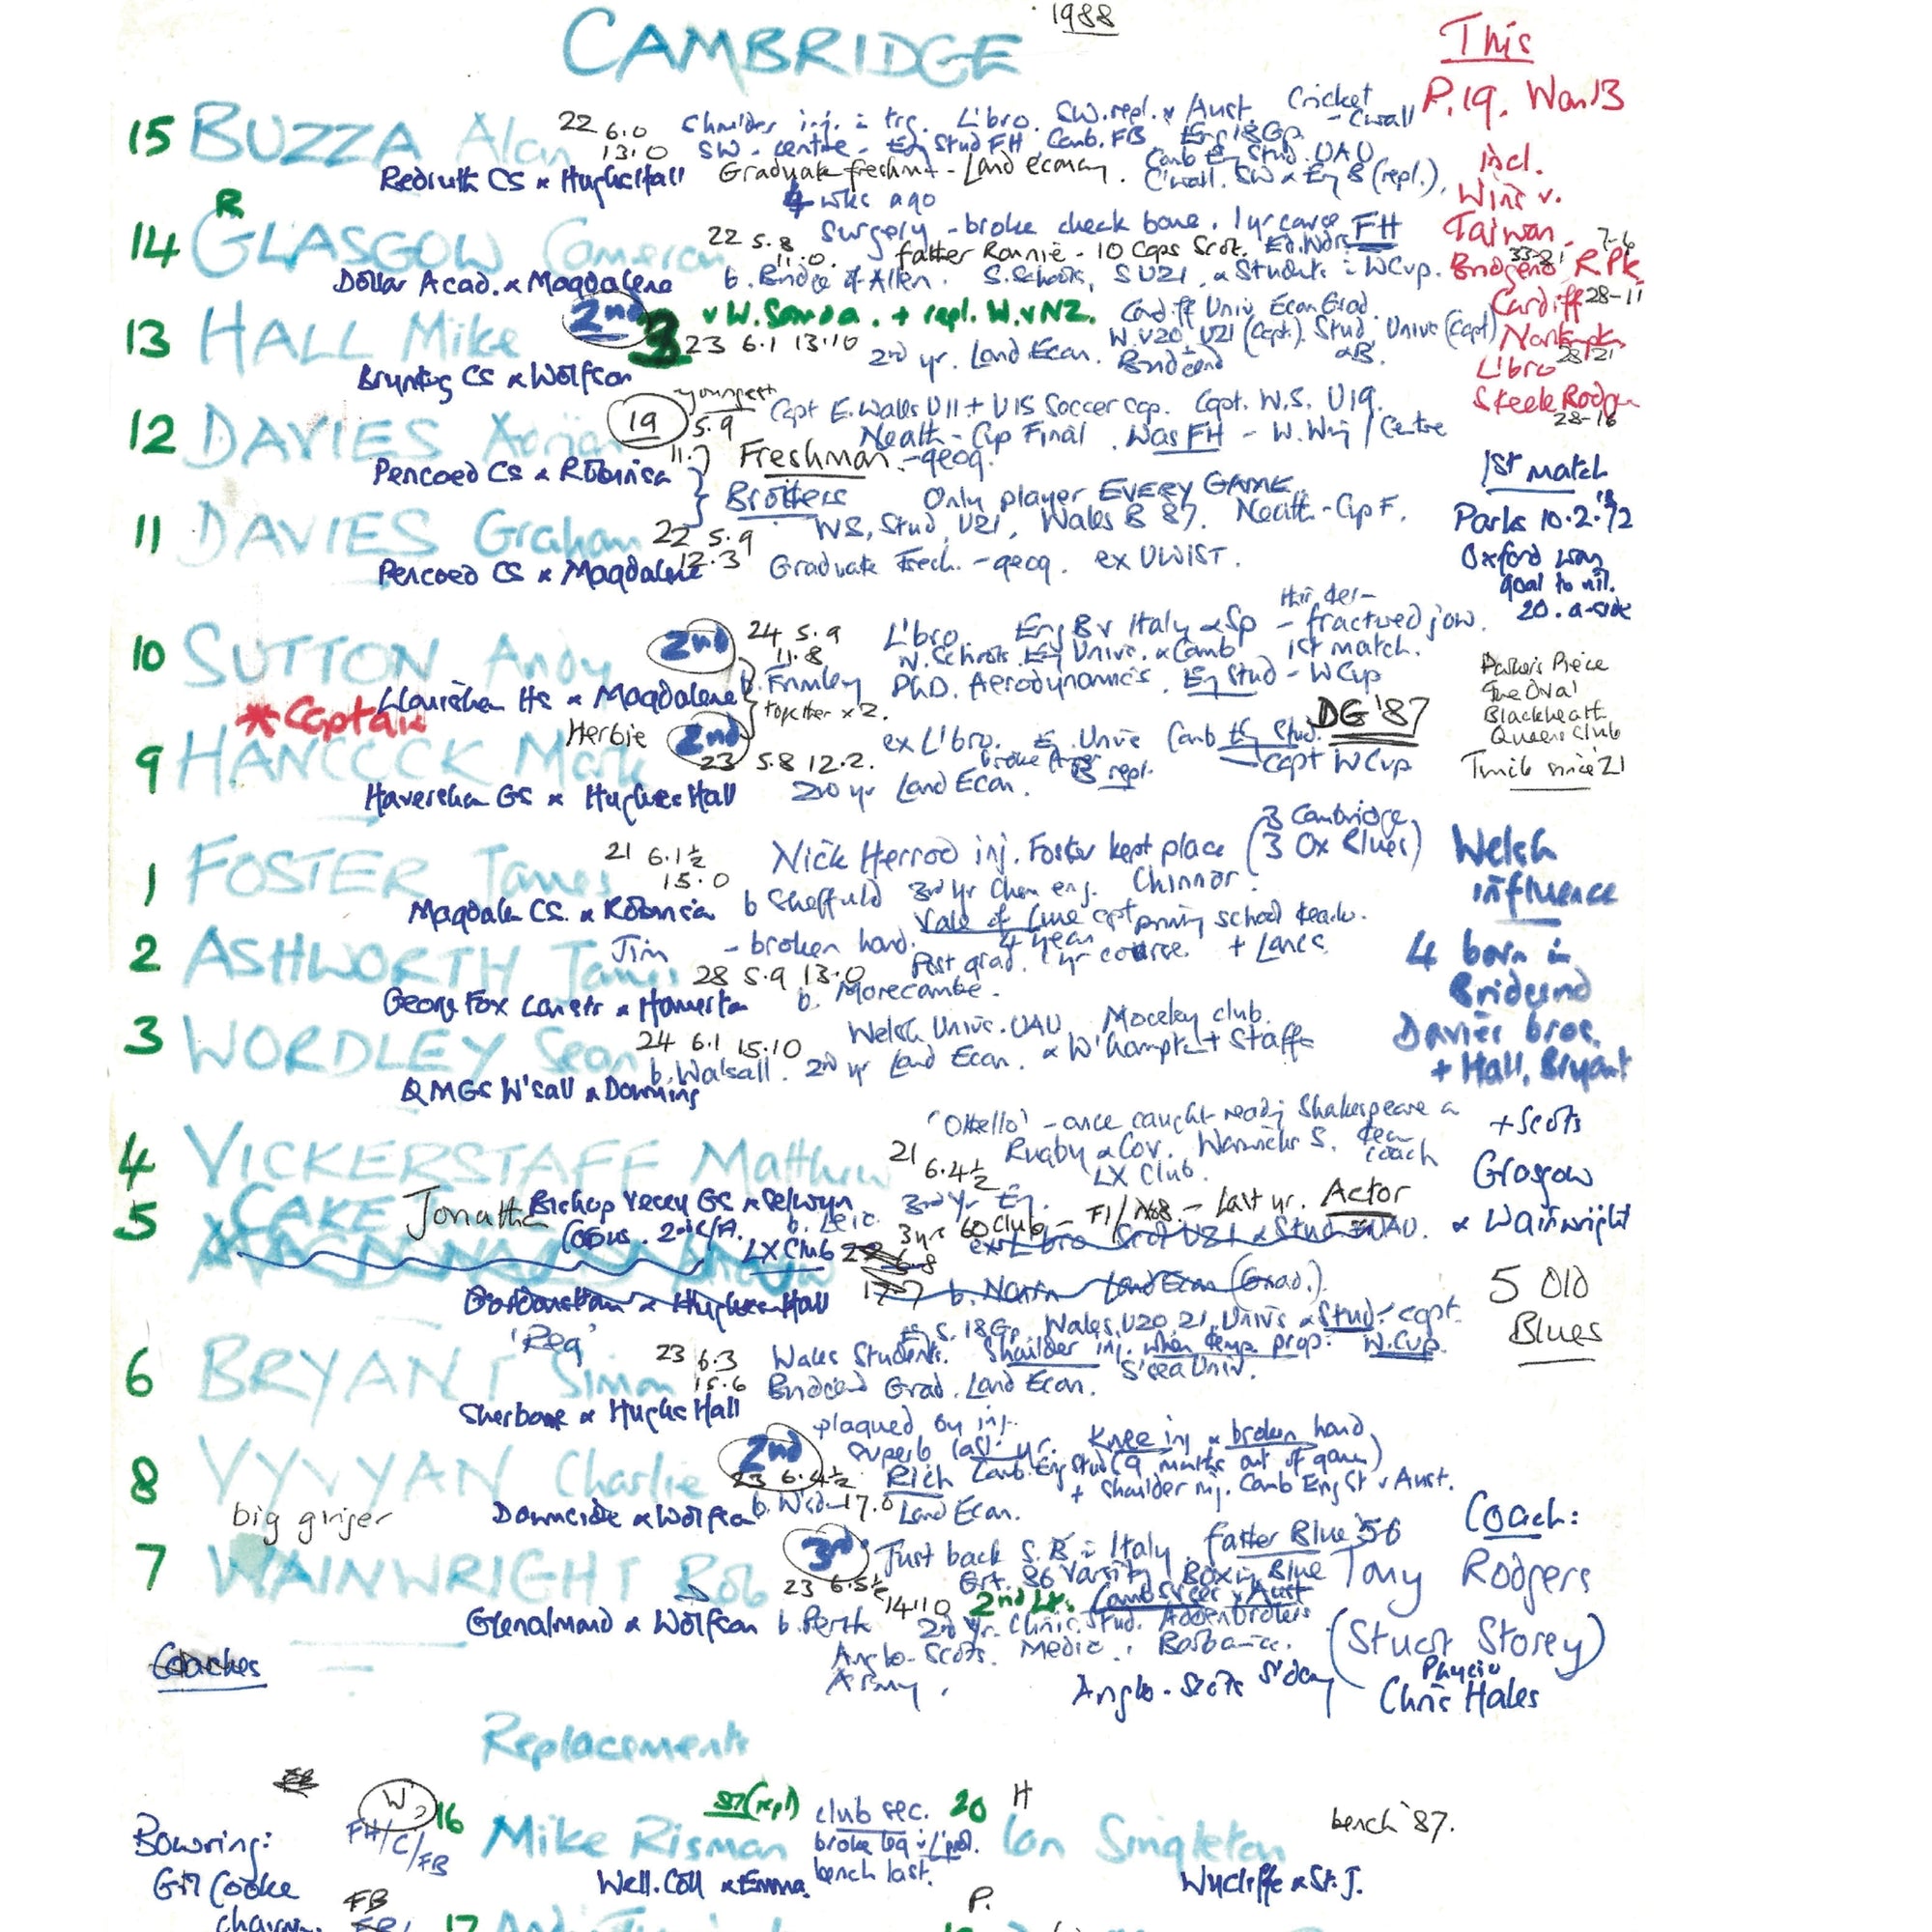 1988
CAMBRIDGE
This
P.19. Won 13
incl.
Wins v.
Taiwan
Bridgend RPk
33-21 7-6
Cardiff 28-11
28-21
Libro
Steele Rodger
28-16
15 BUZZA Alan 22 6.0 13.0
Shoulder inj. in trg. L'bro. SW.repl. v Aust. Cricket - C'wall
SW - centre - Eng Stud FH, Camb. FB Eng 18Gp
Camb Eng Stud. UAU
Redruth CS x Hughes Hall Graduate freshm - Land economy. C'wall. SW x Eng B (repl.),
4 wks ago
R
14 GLASGOW Cameron 22 5.8 11.0.
Surgery - broke cheek bone. 1 yr course FH
father Ronnie - 10 Caps Scot. Ed. Wdrs
Dollar Acad. x Magdalene b. Bridge of Allen. S.Schools, S U21 x Students in WCup.
13 HALL Mike 2nd 3 v W. Samoa. + repl. W. v NZ. Cardiff Univ Econ Grad.
23 6.1 13.10 2nd yr. Land Econ. Bridgend W. U20, U21 (Capt). Stud, Univs (Capt) x B.
Brynteg CS x Wolfson
12 DAVIES Adrian 19 youngest 5.9 11.7
Capt E. Wales U11 + U15 Soccer cap. Capt. W.S. U19.
Neath - Cup Final. Was FH - W. Wing / Centre
Freshman. - geog.
Pencoed CS x Robinson
Brothers
11 DAVIES Graham 22 5.9 12.3
Only player EVERY GAME.
WS, Stud, U21, Wales B 87. Neath - Cup F.
Pencoed CS x Magdalene Graduate Fresh. - geog. ex UWIST.
1st match
Parks 10.2.'72
Oxford won
goal to nil.
20. a-side
10 SUTTON Andy 2nd 24 5.9 11.8
L'bro. Eng B v Italy x Sp - fractured jaw.
N. Schools. Eng Univs. x Camb 1st match.
Llanishen HS x Magdalene b. Frimley PhD. Aerodynamics. Eng Stud - WCup
together x 2.
Parker's Piece
The Oval
Blackheath
Queens Club
Twick since '21
* Captain
9 HANCOCK Mark Herbie 2nd 23 5.8 12.2.
ex L'bro. E. Univs Camb Eng Stud. DG '87
B repl. Capt WCup
Haversham GS x Hughes Hall 2nd yr Land Econ.
1 FOSTER James 21 6.1½ 15.0
Nick Herrod inj. Foster kept place (3 Cambridge 3 Ox Blues)
b Sheffield 3rd yr Chem eng. Chinnor.
Magdalen CS. x Robinson
Vale of Lune capt
Welsh
influence
4 born in
Bridgend
Davies bros.
+ Hall, Bryant
2 ASHWORTH James Jim - broken hand.
28 5.9 13.0 Post grad. 1 yr course. 4 year + Lancs
George Fox x Homerton b. Morecambe.
3 WORDLEY Sean 24 6.1 15.10
Welsh Univs. UAU Moseley club.
b. Walsall. 2nd yr Land Econ. x W'hampton + Staffs
QMGS W'sall x Downing
4 VICKERSTAFF Matthew 21 6.4½
'Othello' - once caught reading Shakespeare in team coach
Rugby x Cov. Warwicks S.
LX Club.
Bishop Vesey GS x Selwyn b. Leic. 3rd Yr Eng.
+ Scots
Glasgow
x Wainwright
5 CAKE Jonathan Corpus. LX Club
60 club - last yr. Actor
ex L'bro Scot U21 x Stud UAU.
b. Nairn Land Econ (Grad.).
Gordonstoun x Hughes Hall
5 Old
Blues
6 BRYANT Simon 'Reg' 23 6.3 15.6
S. 18 Gp, Wales, U20, 21, Univs x Stud - capt.
Wales Students. Shoulder inj. when temp prop: W.Cup.
Bridgend Grad. Land Econ. S'sea Univ.
Sherborne x Hughes Hall
8 VYVYAN Charlie 2nd 23 6.4½ 17.0
plagued by inj.
superb last yr. Knee inj x broken hand
Rich Camb. Eng Stud (9 months out of game)
+ shoulder inj. Camb Eng St v Aust.
Downside x Wolfson Land Econ.
big ginger
7 WAINWRIGHT Rob 3rd 23 6.5½ 14.10
Just back S. B in Italy. father Blue '56
Grt. 86 Varsity Boxing Blue
2nd Lt. Camb v Aust
Glenalmond x Wolfson b. Perth 2nd Yr. Clinic. Stud. Addenbrookes
Anglo-Scots. Medic. Barbarian.
Army. Anglo-Scots S'day
Coach:
Tony Rodgers
(Stuart Storey)
Physio
Chris Hales
Coaches
Replacements
W FH/C/FB
16 Mike Risman 87(repl) club sec.
broke leg v L'pool.
bench last.
Well. Coll x Emma.
20 H Ian Singleton bench '87.
Wycliffe x St. J.
Bowring:
Gill Cooke
FB
P.
17